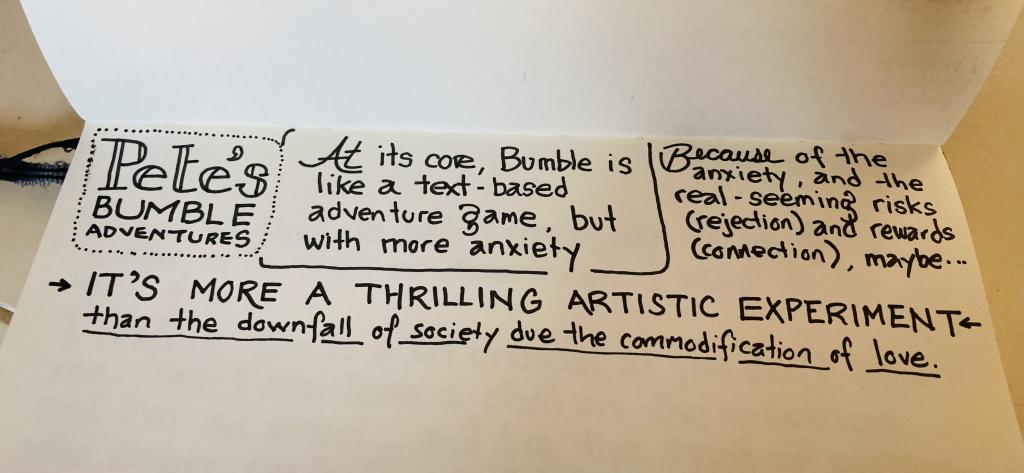 Pete's
BUMBLE
ADVENTURES
At its core, Bumble is
like a text-based
adventure game, but
with more anxiety
Because of the
anxiety, and the
real-seeming risks
(rejection) and rewards
(connection), maybe...
→ IT'S MORE A THRILLING ARTISTIC EXPERIMENT ←
than the downfall of society due the commodification of love.